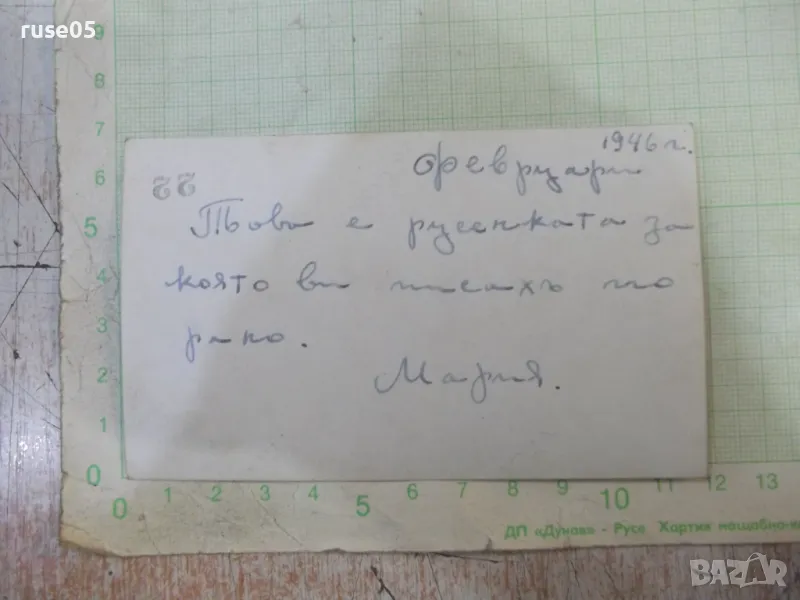 ruse05
9
8
7
6
5
4
3
2
1
0
1946 г.
Февруари
22
Това е русенката за
която ви писахъ по
рано.
Мария.
0 1 2 3 4 5 6 7 8 9 10 11 12 13
ДП «Дунав» - Русе Хартия мащабно-
BAZAR